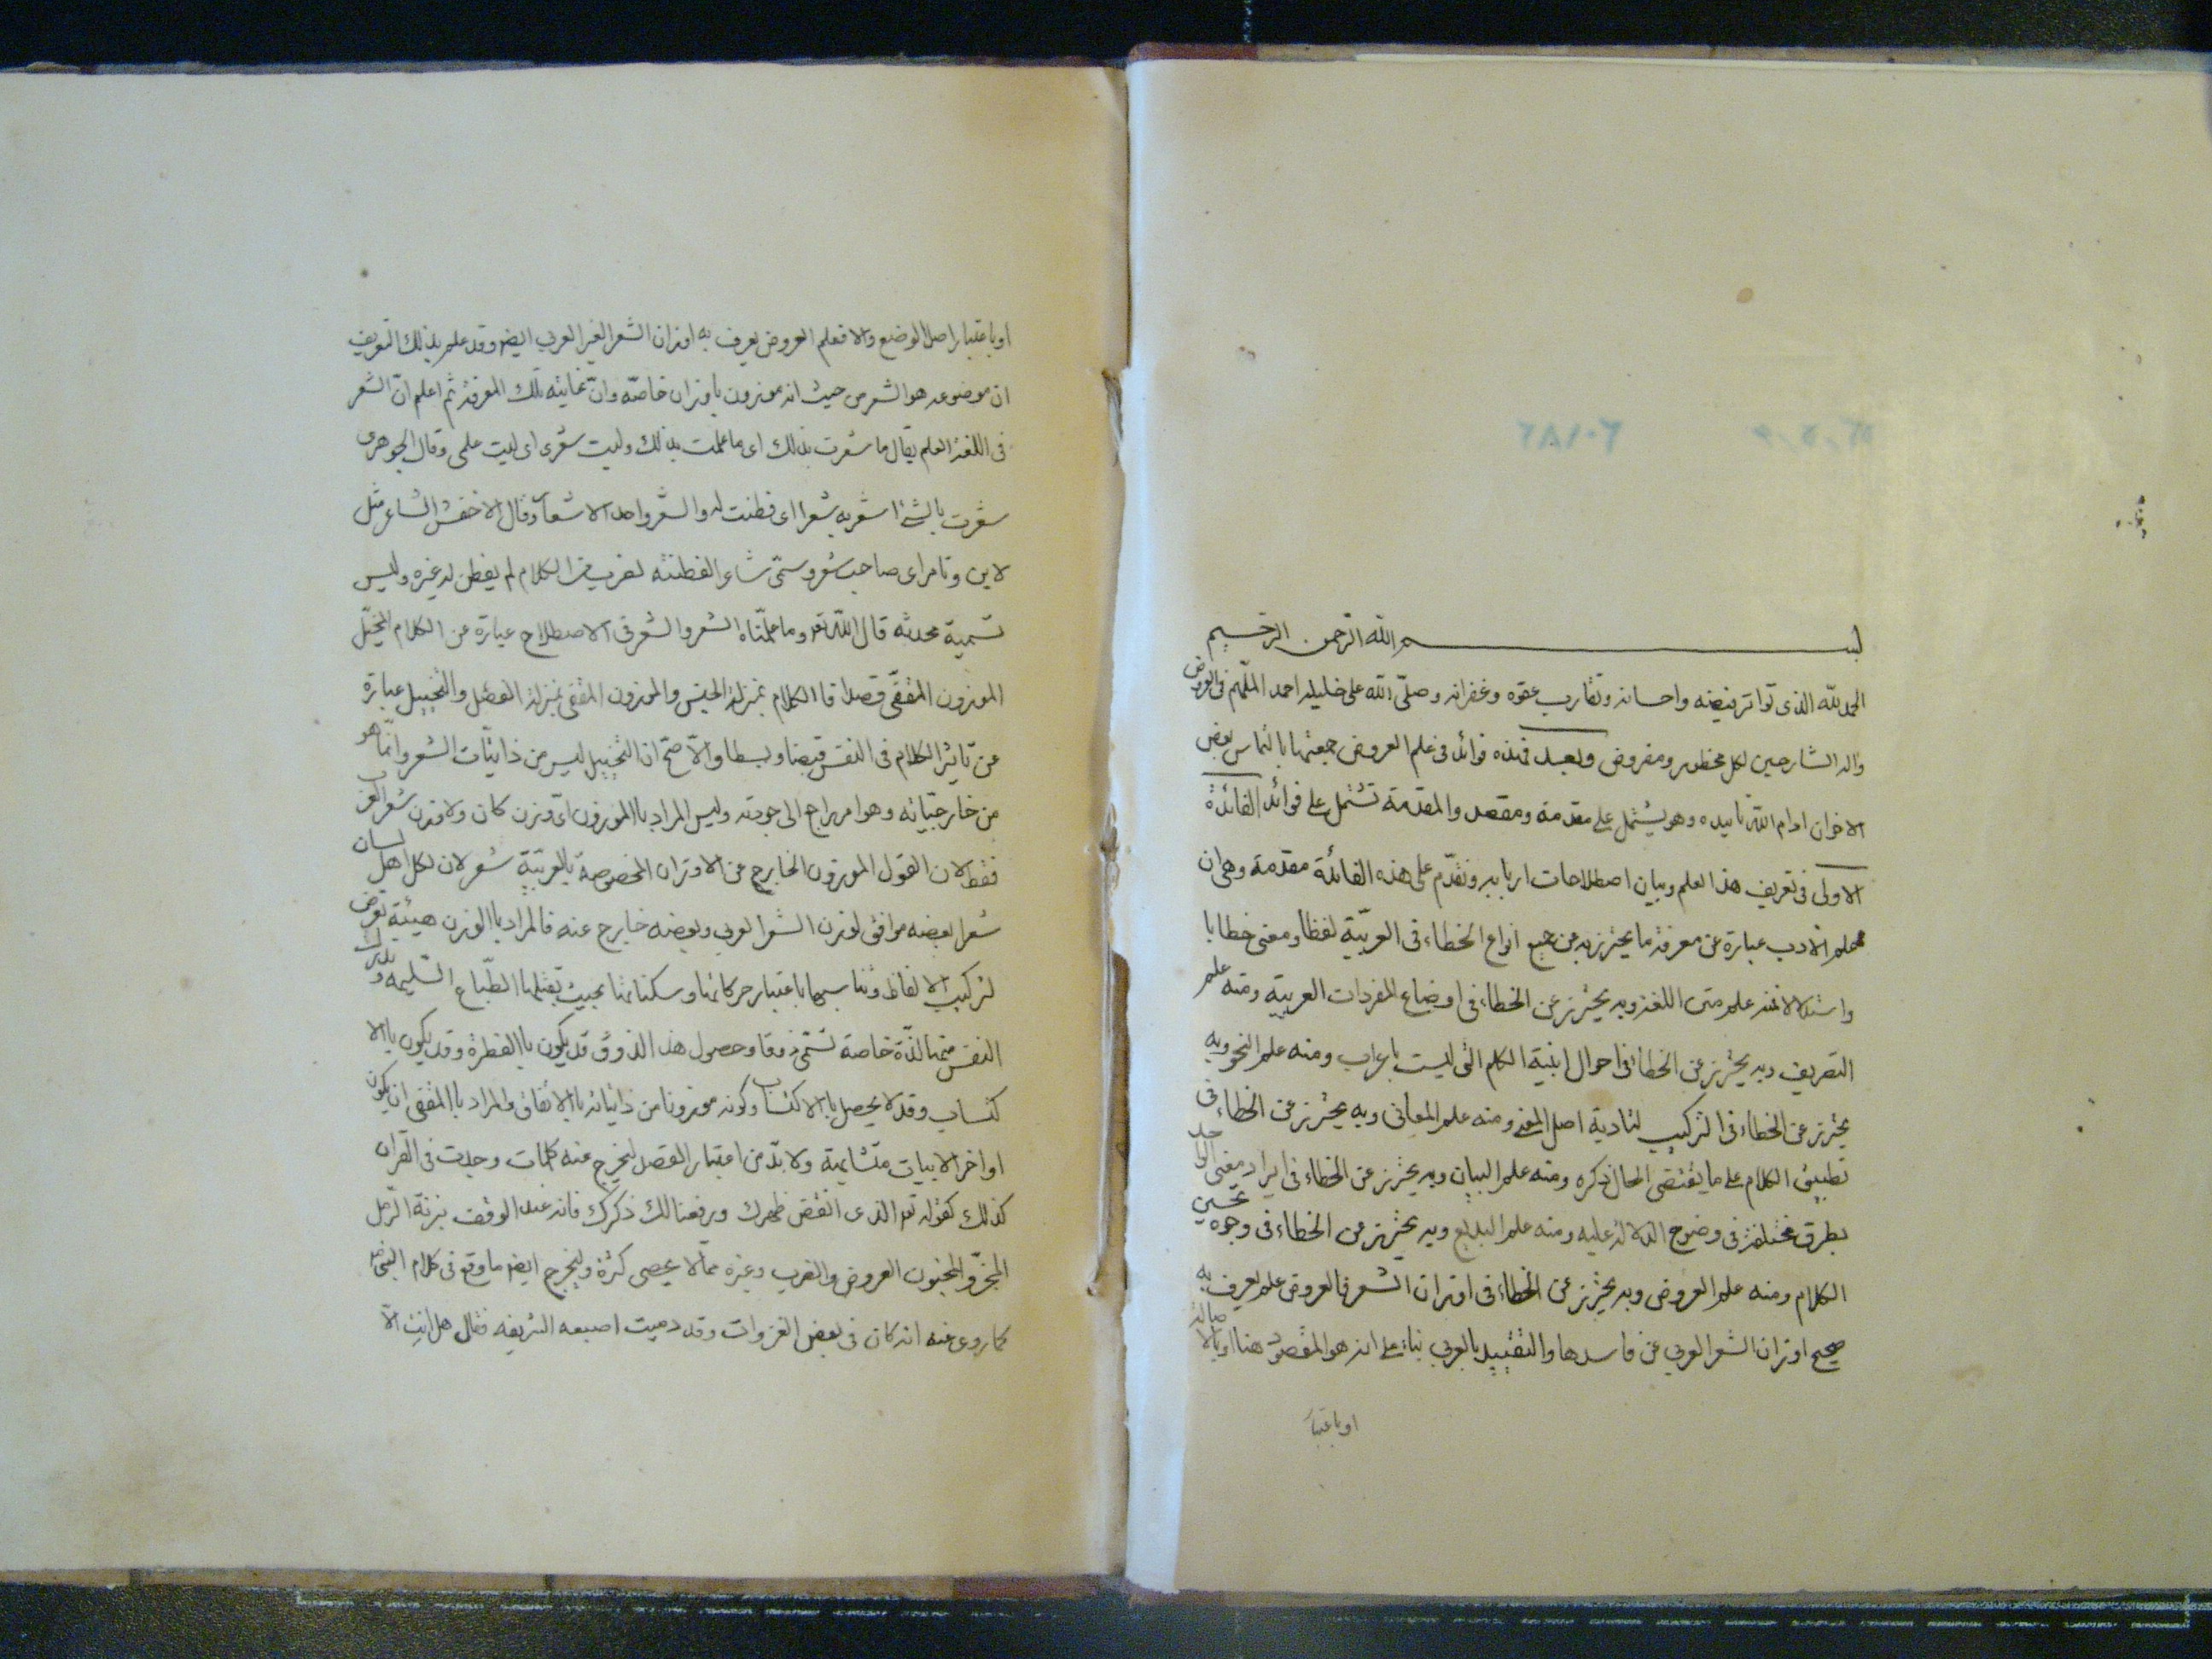 بسم الله الرحمن الرحيم
الحمد لله الذى تواتر فيضه واحسانه وتقارب عفوه وغفرانه وصلّى الله على خليله احمد الملهم فى العروض
واله الشارحين لكل محظور ومفروض وبعد فهذه فوائد فى علم العروض جمعتها بالتماس بعض
الاخوان ادام الله تاييده وهو يشتمل على مقدمة ومقصد والمقدمة تشتمل على فوائد الفائدة
الاولى فى تعريف هذا العلم وبيان اصطلاحات اربابه ونقدّم على هذه الفائدة مقدمة وهى ان
علم الادب عبارة عن معرفة ما يحترز به عن جميع انواع الخطاء فى العربيّة لفظا ومعنى خطابا
واستدلالا فمنه علم متن اللغة وبه يحترز عن الخطاء فى اوضاع المفردات العربية ومنه علم
التصريف وبه يحترز عن الخطاء فى احوال ابنية الكلم التى ليست باعراب ومنه علم النحو وبه
يحترز عن الخطاء فى التركيب لتادية اصل المعنى ومنه علم المعانى وبه يحترز عن الخطاء فى
تطبيق الكلام على ما يقتضى الحال ذكره ومنه علم البيان وبه يحترز عن الخطاء فى ايراد معنى الواحد
بطرق مختلفة فى وضوح الدلالة عليه ومنه علم البديع وبه يحترز عن الخطاء فى وجوه تحسين
الكلام ومنه علم العروض وبه يحترز عن الخطاء فى اوزان الشعر فالعروض علم يعرف به
صحيح اوزان الشعر العربي عن فاسدها والتقييد بالعربي بناء على انه هو المقصود هنا او بالاصالة
او باعتبار
او باعتبار اصل الوضع والا فعلم العروض يعرف به اوزان الشعر الغير العربي ايضا وقد علم بذلك التعريف
ان موضوعه هو الشعر من حيث انه موزون باوزان خاصّة وانّ غايته تلك المعرفة ثم اعلم انّ الشعر
فى اللغة العلم يقال ما شعرت بذلك اى ما علمت بذلك وليت شعرى اى ليت علمى وقال الجوهرى
شعرت بالشئ اشعر به شعرا اى فطنت له والشعر واحد الاشعار وقال الاخفش الشاعر مثل
لابن وتامر اى صاحب شعر وسمّى شاعرا لفطنته لغريب من الكلام لم يفطن له غيره وليس
تسمية محدثة قال الله تعالى وما علّمناه الشعر والشعر فى الاصطلاح عبارة عن الكلام المخيّل
الموزون المقفّى قصدا فالكلام بمنزلة الجنس والموزون المقفى بمنزلة الفصل والتخييل عبارة
عن تاثير الكلام فى النفس قبضا وبسطا والاصحّ ان التخييل ليس من ذاتيّات الشعر وانّما هو
من خارجيّاته وهو امر راجع الى جودته وليس المراد باالموزون اىّ وزن كان ولا وزن شعر العرب
فقط لان القول الموزون الخارج عن الاوزان المخصوصة بالعربيّة شعر لان لكل اهل لسان
شعرا بعضه موافق لوزن الشعر العربي وبعضه خارج عنه فالمراد باالوزن هيئة تعرض
لتركيب الالفاظ وتناسبها باعتبار حركاتها وسكناتها بحيث يقبلها الطّباع السليمه وتدرك
النفس منها لذّة خاصة تسمّى ذوقا وحصول هذا الذوق قد يكون باالفطرة وقد يكون باالا
كتساب وقد لا يحصل باالاكتساب وكونه موزونا من ذاتياته باالاتفاق والمراد باالمقفى ان يكون
اواخر الابيات متشابهة ولا بدّ من اعتبار القصد ليخرج عنه كلمات وجدت فى القران
كذلك كقوله تعالى الذى انقض ظهرك ورفعنا لك ذكرك فانه عند الوقف بزنة الرّمل
المجزّو المخبون العروض والضرب وغيره ممّا لا يحصى كثرة وليخرج ايضا ما وقع فى كلام النبى
كما روى عنه انه كان فى بعض الغزوات وقد دميت اصبعه الشريفه فقال هل انت الا